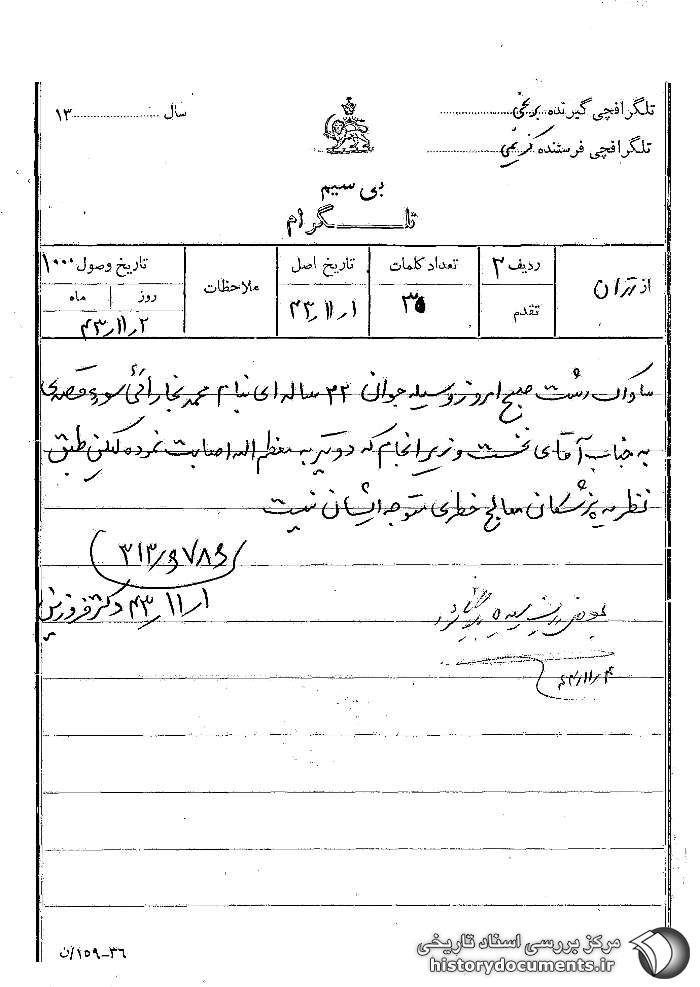 تلگرافچی گیرنده
سال ۱۳
تلگرافچی فرستنده کریمی
بی سیم
تلگرام
از تهران
ردیف ۲
تقدم
تعداد کلمات
۳۵
تاریخ اصل
۴۳/۱۱/۱
ملاحظات
تاریخ وصول ۱۰۰۰
روز
ماه
۴۳/۱۱/۲
ساواک رشت صبح امروز وسیله جوان ۲۲ ساله‌ای بنام محمد بخارائی سوء قصدی
به جناب آقای نخست وزیر انجام که دو تیر به معظم اله اصابت نموده لیکن طبق
نظریه پزشکان معالج خطری متوجه ایشان نیست
۱/۱۱/۴۳ دکتر
۴۳/۱۱/۴
۳۶-۱۵۹/ن
مرکز بررسی اسناد تاریخی
historydocuments.ir